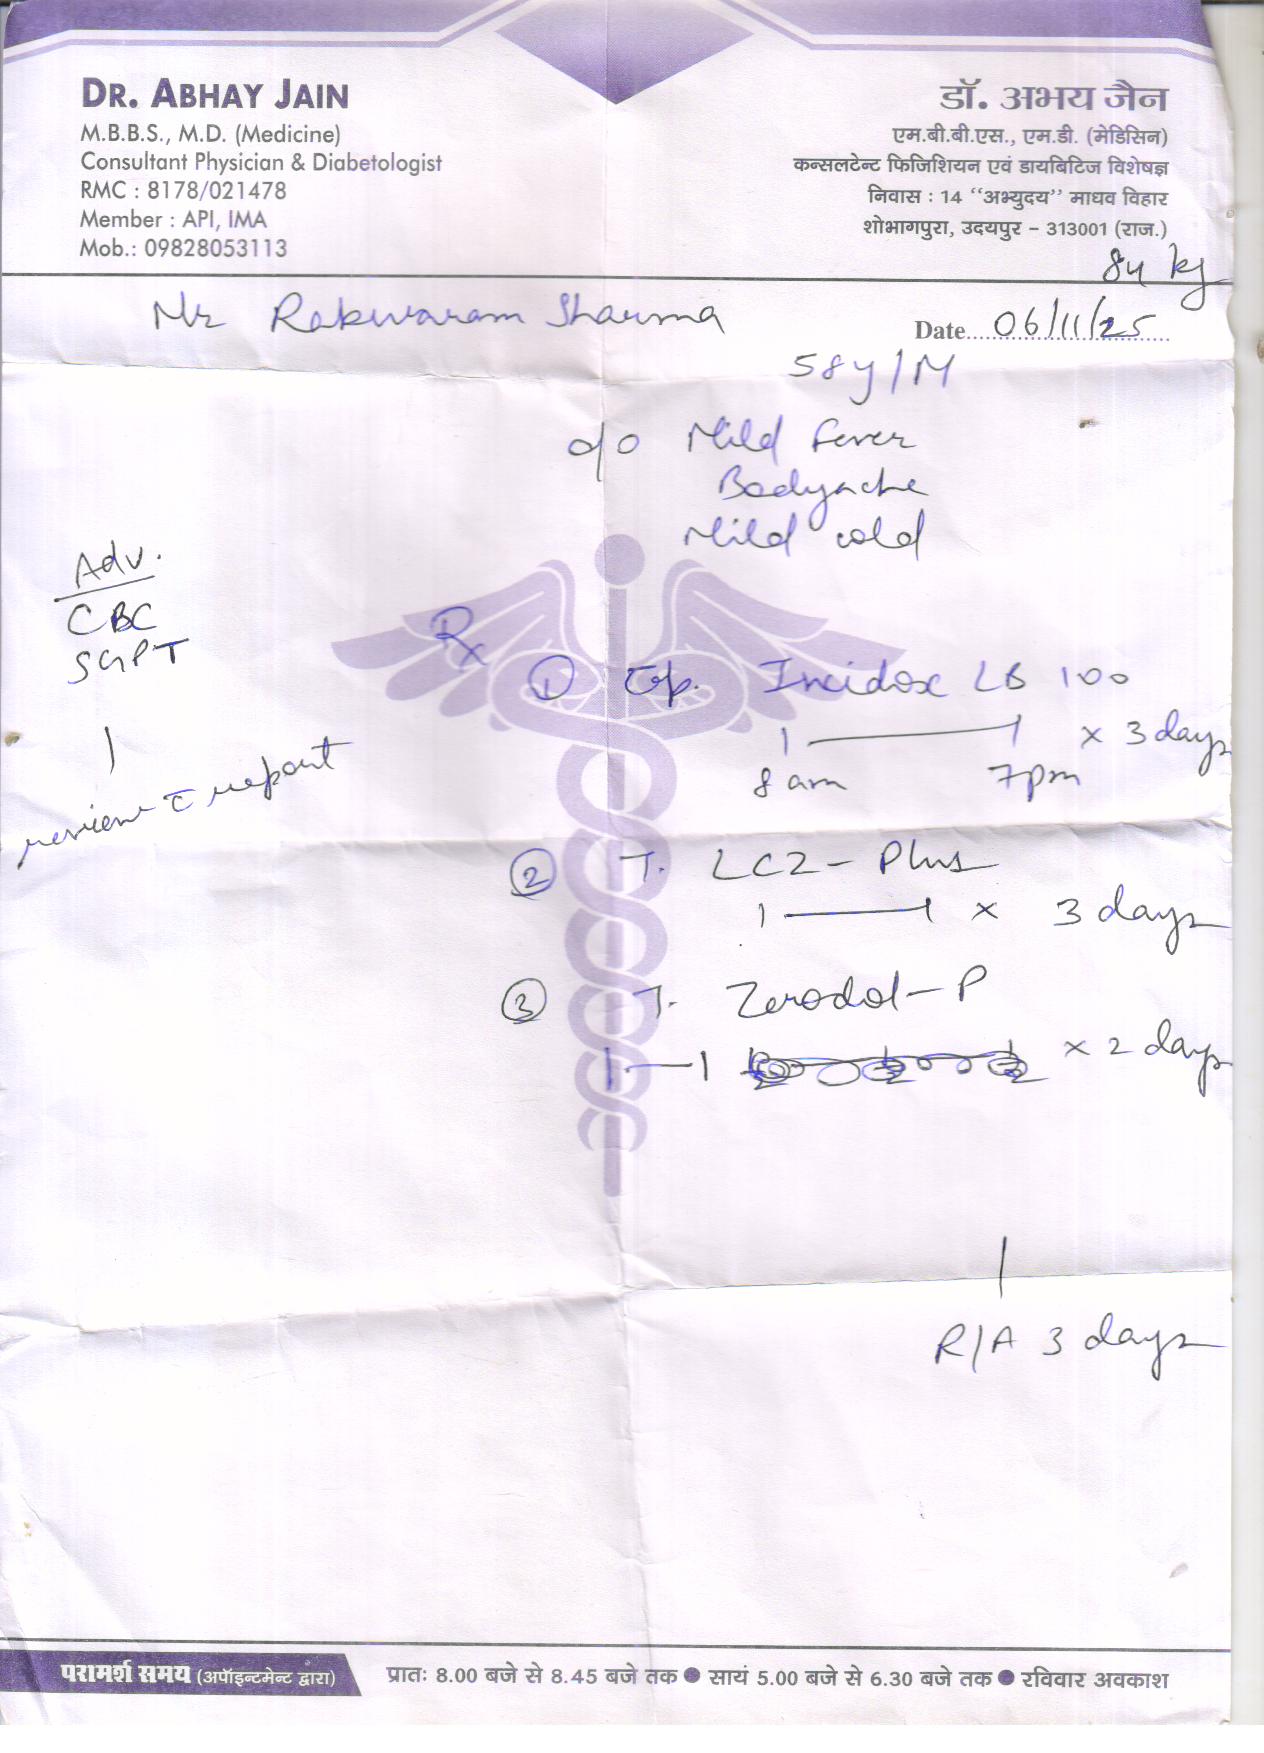 DR. ABHAY JAIN
M.B.B.S., M.D. (Medicine)
Consultant Physician & Diabetologist
RMC : 8178/021478
Member : API, IMA
Mob.: 09828053113
डॉ. अभय जैन
एम.बी.बी.एस., एम.डी. (मेडिसिन)
कन्सलटेन्ट फिजिशियन एवं डायबिटिज विशेषज्ञ
निवास : 14 “अभ्युदय” माधव विहार
शोभागपुरा, उदयपुर - 313001 (राज.)
84 kg
Mr Sharma
Date 06/11/25
58y/M
Mild fever
Bodyache
Mild cold
Adv.
CBC
SGPT
review c̄ report
Rx ① Cap. Incidox LB 100
1 — 1 x 3 days
8 am 7pm
② T. LCZ - Plus
1 — 1 x 3 days
③ T. Zerodol - P
1 — 1 x 2 days
R/A 3 days
परामर्श समय (अपॉइन्टमेन्ट द्वारा) प्रातः 8.00 बजे से 8.45 बजे तक ● सायं 5.00 बजे से 6.30 बजे तक ● रविवार अवकाश